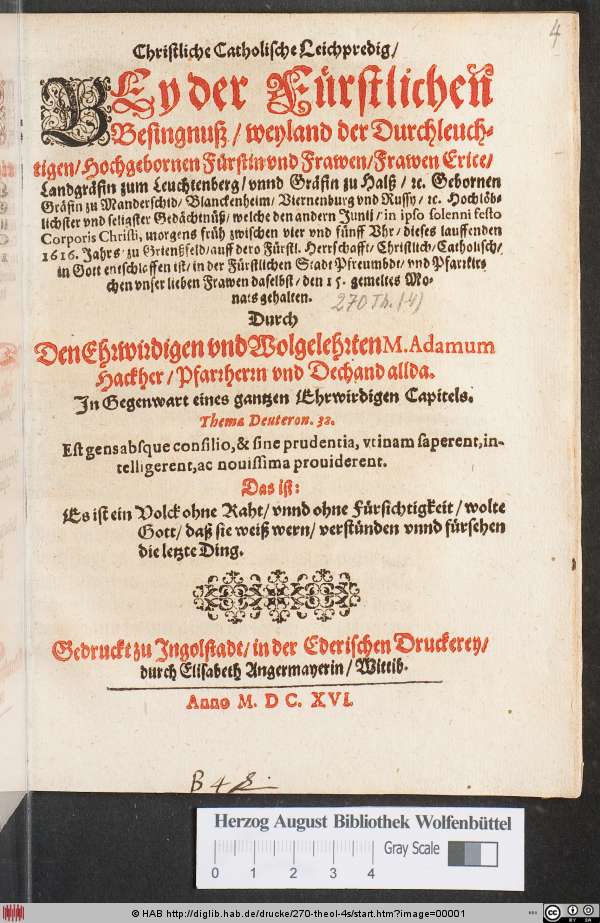 4
Christliche Catholische Leichpredig/
BEy der Fürstlichen
Besingnuß/ weyland der Durchleuch-
tigen/ Hochgebornen Fürstin vnd Frawen/ Frawen Erice/
Landgräfin zum Leuchtenberg/ vnnd Gräfin zu Halß/ ꝛc. Gebornen
Gräfin zu Manderschid/ Blanckenheim/ Viernenburg vnd Russy/ ꝛc. Hochlöb-
lichster vnd seligster Gedächtnüß/ welche den andern Junii/ in ipso solenni festo
Corporis Christi, morgens früh zwischen vier vnd fünff Vhr/ dieses lauffenden
1616. Jahrs/ zu Grienßfeld/ auff dero Fürstl. Herrschafft/ Christlich/ Catholisch/
in Gott entschlaffen ist/ in der Fürstlichen Stadt Pfreumbdt/ vnd Pfarrkir-
chen vnser lieben Frawen daselbst/ den 15. gemeltes Mo-
nats gehalten.
270 Th. (4)
Durch
Den Ehrwirdigen vnd Wolgelehrten M. Adamum
Hackher/ Pfarrherrn vnd Dechand allda.
In Gegenwart eines gantzen Ehrwirdigen Capitels.
Thema Deuteron. 32.
Est gens absque consilio, & sine prudentia, vtinam saperent, in-
telligerent, ac nouissima prouiderent.
Das ist:
Es ist ein Volck ohne Raht/ vnnd ohne Fürsichtigkeit/ wolte
Gott/ daß sie weiß wern/ verstünden vnnd fürsehen
die letzte Ding.
Gedruckt zu Ingolstadt/ in der Ederischen Druckerey/
durch Elisabeth Angermayerin/ Wittib.
Anno M. D C. XVI.
B 4
Herzog August Bibliothek Wolfenbüttel
Gray Scale
0 1 2 3 4
© HAB http://diglib.hab.de/drucke/270-theol-4s/start.htm?image=00001
cc BY SA